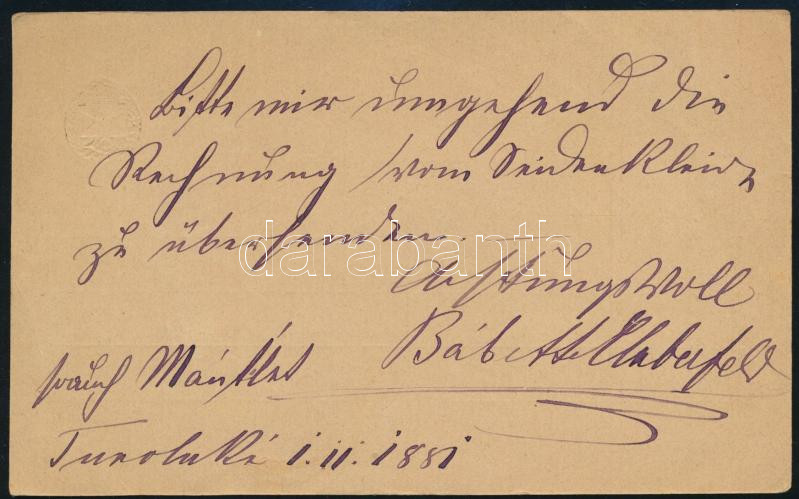 Bitte mir umgehend die
Rechnung vom Seidenkleide
zu übersenden.
Achtungsvoll
Babette Elaberfeld
auch Mäntlet
1.11.1881
darabanth